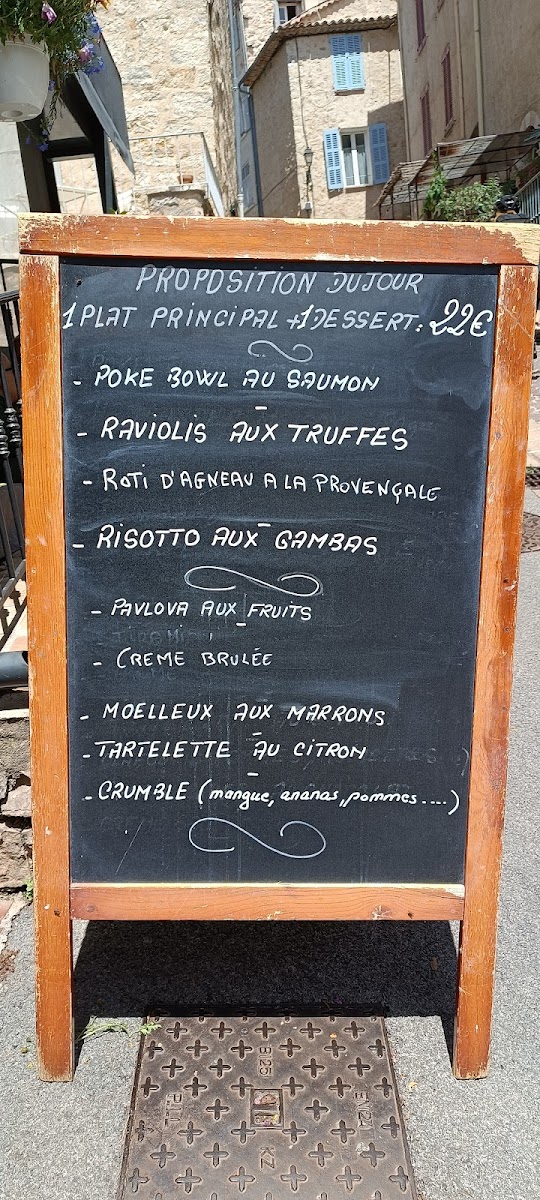 PROPOSITION DU JOUR
1 PLAT PRINCIPAL + 1 DESSERT: 22€
- POKE BOWL AU SAUMON
- RAVIOLIS AUX TRUFFES
- ROTI D'AGNEAU A LA PROVENÇALE
- RISOTTO AUX GAMBAS
- PAVLOVA AUX FRUITS
- CREME BRULÉE
- MOELLEUX AUX MARRONS
- TARTELETTE AU CITRON
- CRUMBLE (mangue, ananas, pommes....)
B125
EN124
KZ